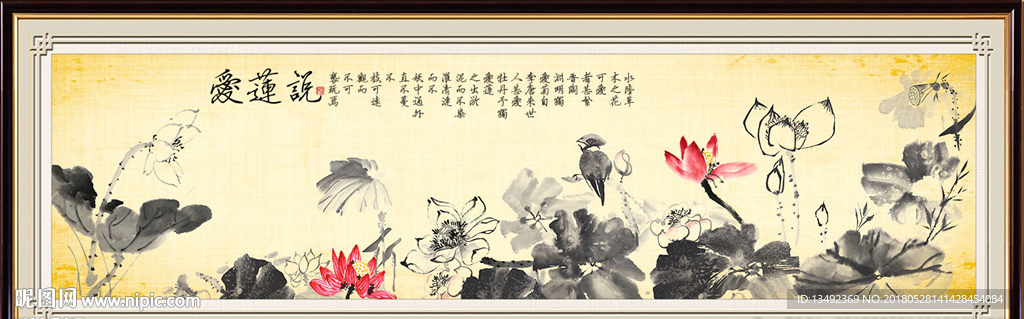 愛蓮說
水陸草
木之花
可愛
者甚蕃
晉陶
淵明獨
愛菊自
李唐來世
人甚愛
牡丹予獨
愛蓮
之出淤
泥而不染
濯清漣
而不
妖中通外
直不蔓
不
枝可遠
觀而
不可
褻玩焉
昵图网 www.nipic.com
ID:13492369 NO:20180528141428454084